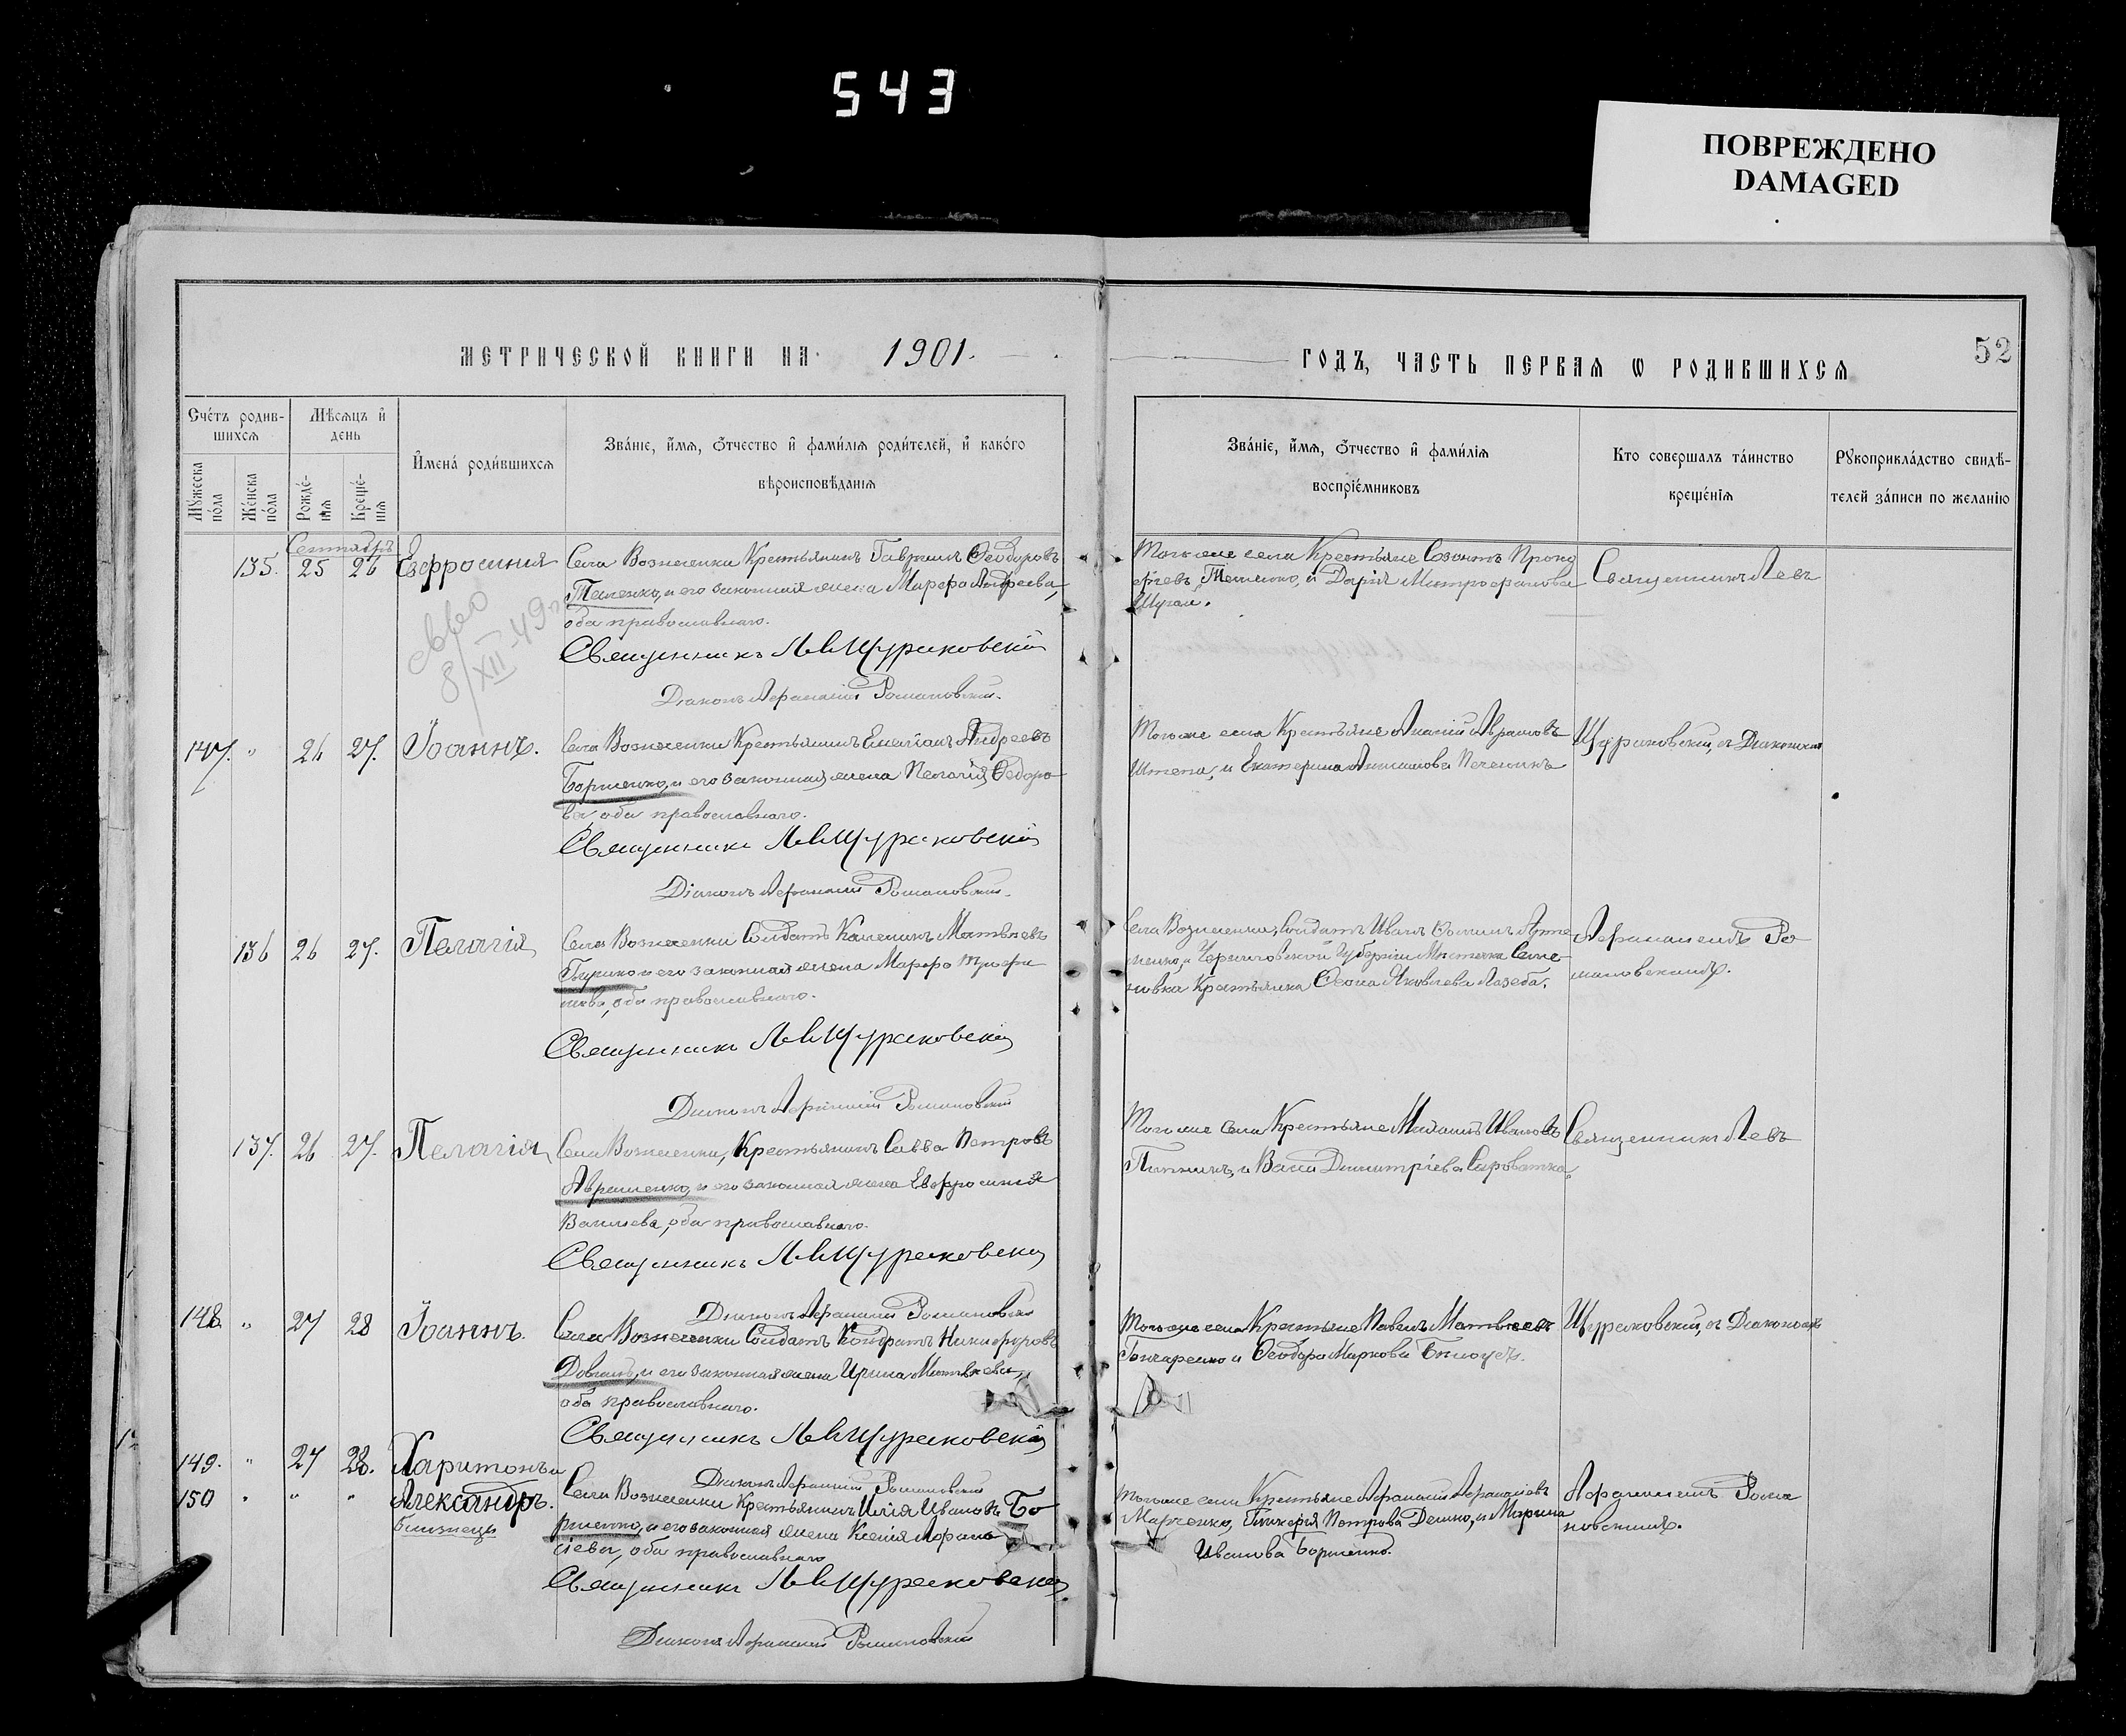 543
ПОВРЕЖДЕНО
DAMAGED
52
МЕТРИЧЕСКОЙ КНИГИ НА 1901.
ГОДЪ, ЧАСТЬ ПЕРВАЯ Ѡ РОДИВШИХСЯ
Сче́тъ родив-
шихся
Мѣсяцъ и҆
день
Мꙋ́жеска
по́ла
Же́нска
по́ла
Рожде́-
нїя
Креще́-
нїя
И҆мена́ роди́вшихся
Зва́нїе, и҆́мя, ѻ҆́тчество и҆ фами́лїя роди́телей, и҆ како́го
вѣроисповѣ́данїя
Зва́нїе, и҆́мя, ѻ҆́тчество и҆ фами́лїя
воспрїе́мниковъ
Кто соверша́лъ та́инство
креще́нїя
Рꙋкоприкла́дство свидѣ́-
телей за́писи по жела́нїю
Сентябрь
135. 25 26 Евфросинія
Села Вознесенки Крестьянинъ Феодоровъ
и его законная жена Марфа Андреева,
оба православнаго.
Священникъ Л. Щураковскій
Діаконъ Афанасій Романовскій.
Тогоже села Крестьяне Созонтъ Проко
фіевъ и Дарія Митрофанова
Священникъ Левъ
8/XII-49
147. " 26 27. Іоаннъ.
Села Вознесенки Крестьянинъ Емеліанъ Андреевъ
Борженко, и его законная жена Пелагія Федоро-
ва оба православнаго.
Священникъ Л. Щураковскій
Діаконъ Афанасій Романовскій.
Тогоже села Крестьяне Ананій Абрамовъ
Штепа, и Екатерина
Щураковскій, съ Діакономъ
136 26 27. Пелагія
Села Вознесенки Солдатъ Каленикъ Матвѣевъ
и его законная жена Марфа Трофи
мова, оба православнаго.
Священникъ Л. Щураковскій
Діаконъ Афанасій Романовскій
Села Вознесенки, Солдатъ Иванъ
и Черниговской губерніи Мистечка Семе-
новка Крестьянка Яковлева Лазеба.
Афанасіемъ Ро
мановскимъ.
137. 26 27. Пелагія,
Села Вознесенки, Крестьянинъ Савва Петровъ
Авраменко, и его законная жена Евфросинія
Васильева, оба православнаго.
Священникъ Л. Щураковскій
Діаконъ Афанасій Романовскій
Тогоже села Крестьяне Михаилъ Ивановъ
и Васса Димитріева Сироватка.
Священникъ Левъ
148. " 27 28 Іоаннъ.
Села Вознесенки Солдатъ Кондратъ Никифоровъ
Довгаль, и его законная жена Ирина Матвѣева,
оба православнаго.
Священникъ Л. Щураковскій
Діаконъ Афанасій Романовскій
Тогоже села Крестьяне Павелъ Матвѣевъ
Гончаренко и Феодора Маркова Билоусъ.
Щураковскій, съ Діакономъ
149. " 27 28. Харитонъ и
150 " " " Александръ.
близнецы
Села Вознесенки Крестьянинъ Илія Ивановъ Бо
рженко, и его законная жена Ксенія Афана
сіева, оба православнаго
Священникъ Л. Щураковскій
Діаконъ Афанасій Романовскій
Тогоже села Крестьяне Афанасій Афанасіевъ
Марченко, Гликерія Петрова Демко, и Марина
Иванова Борженко.
Афанасіемъ Рома
новскимъ.